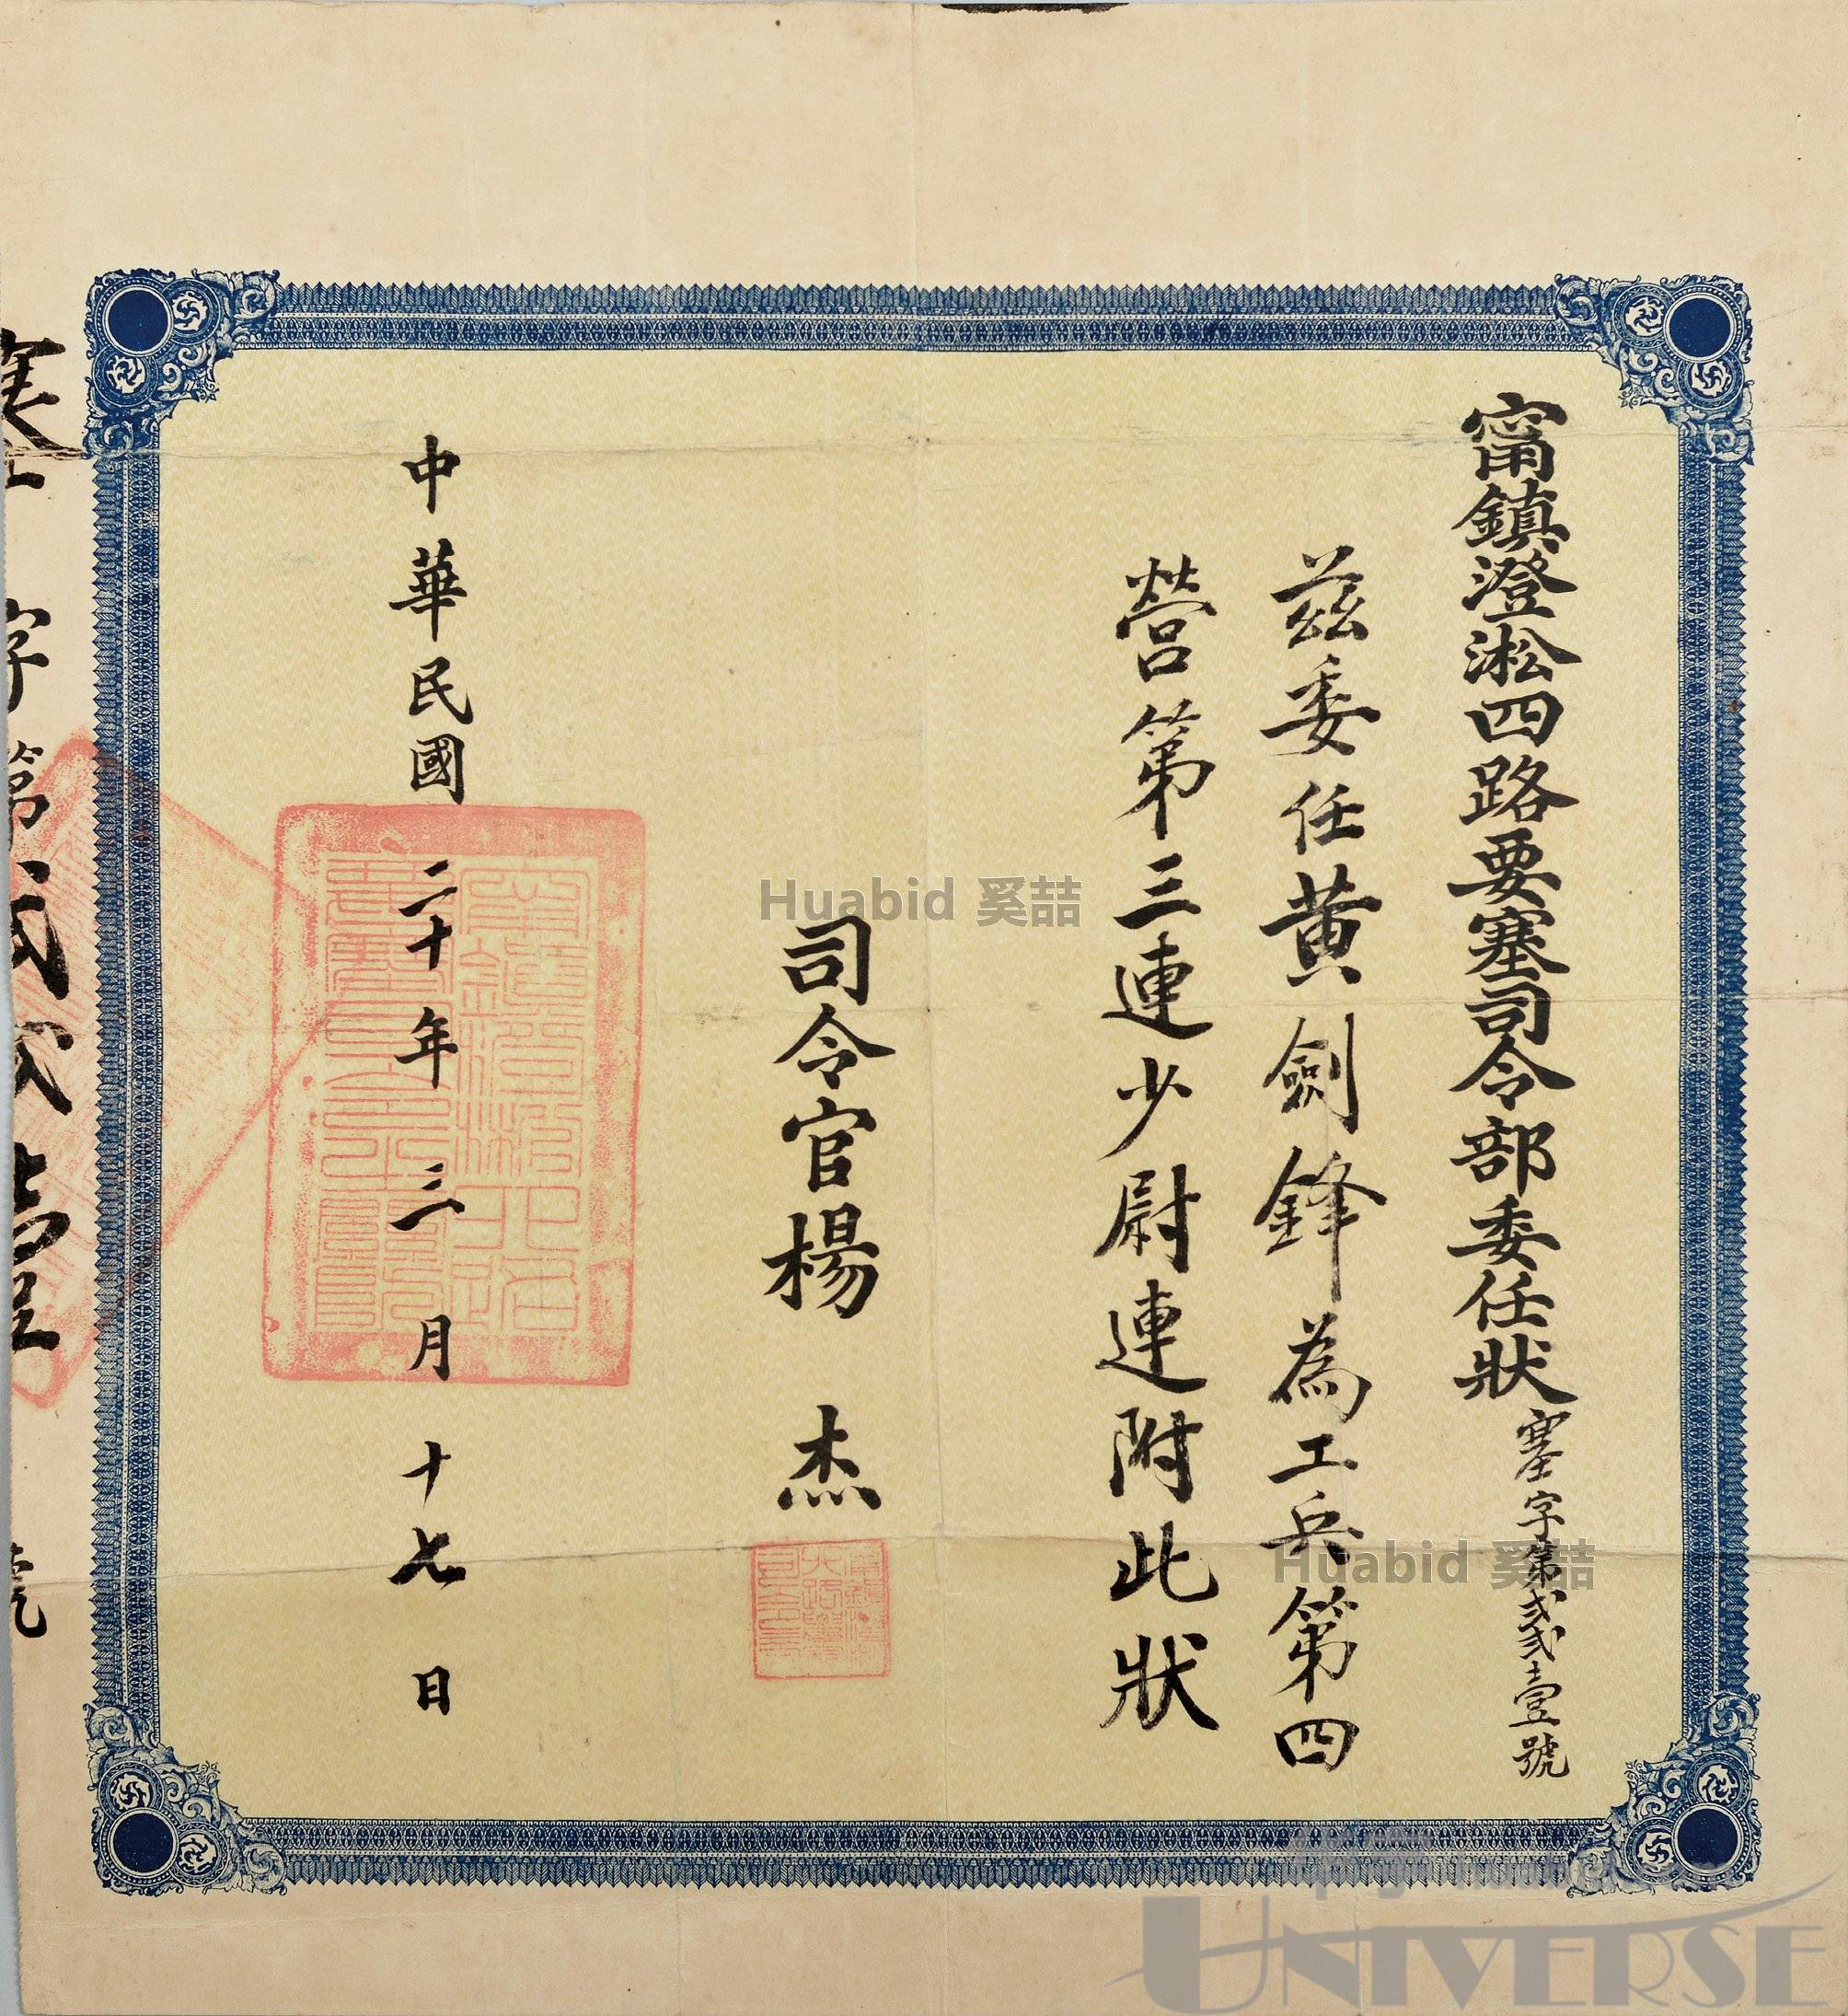 甯鎮澄淞四路要塞司令部委任狀 塞字第弍弍壹號
茲委任黄劍鋒為工兵第四
營第三連少尉連附此狀
司令官楊 杰
中華民國二十年三月十七日
塞字第弍弍壹號
Huabid 奚喆
Huabid 奚喆
UNIVERSE